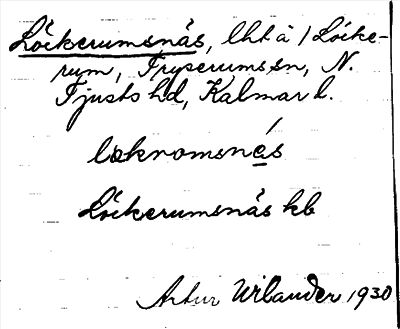 Löckerumsnäs, lht å 1 Löcke-
rum, Fryserums sn, N.
Tjusts hd, Kalmar l.
loknomsnäs
Löckerumsnäs kb
Artur Wilander 1930